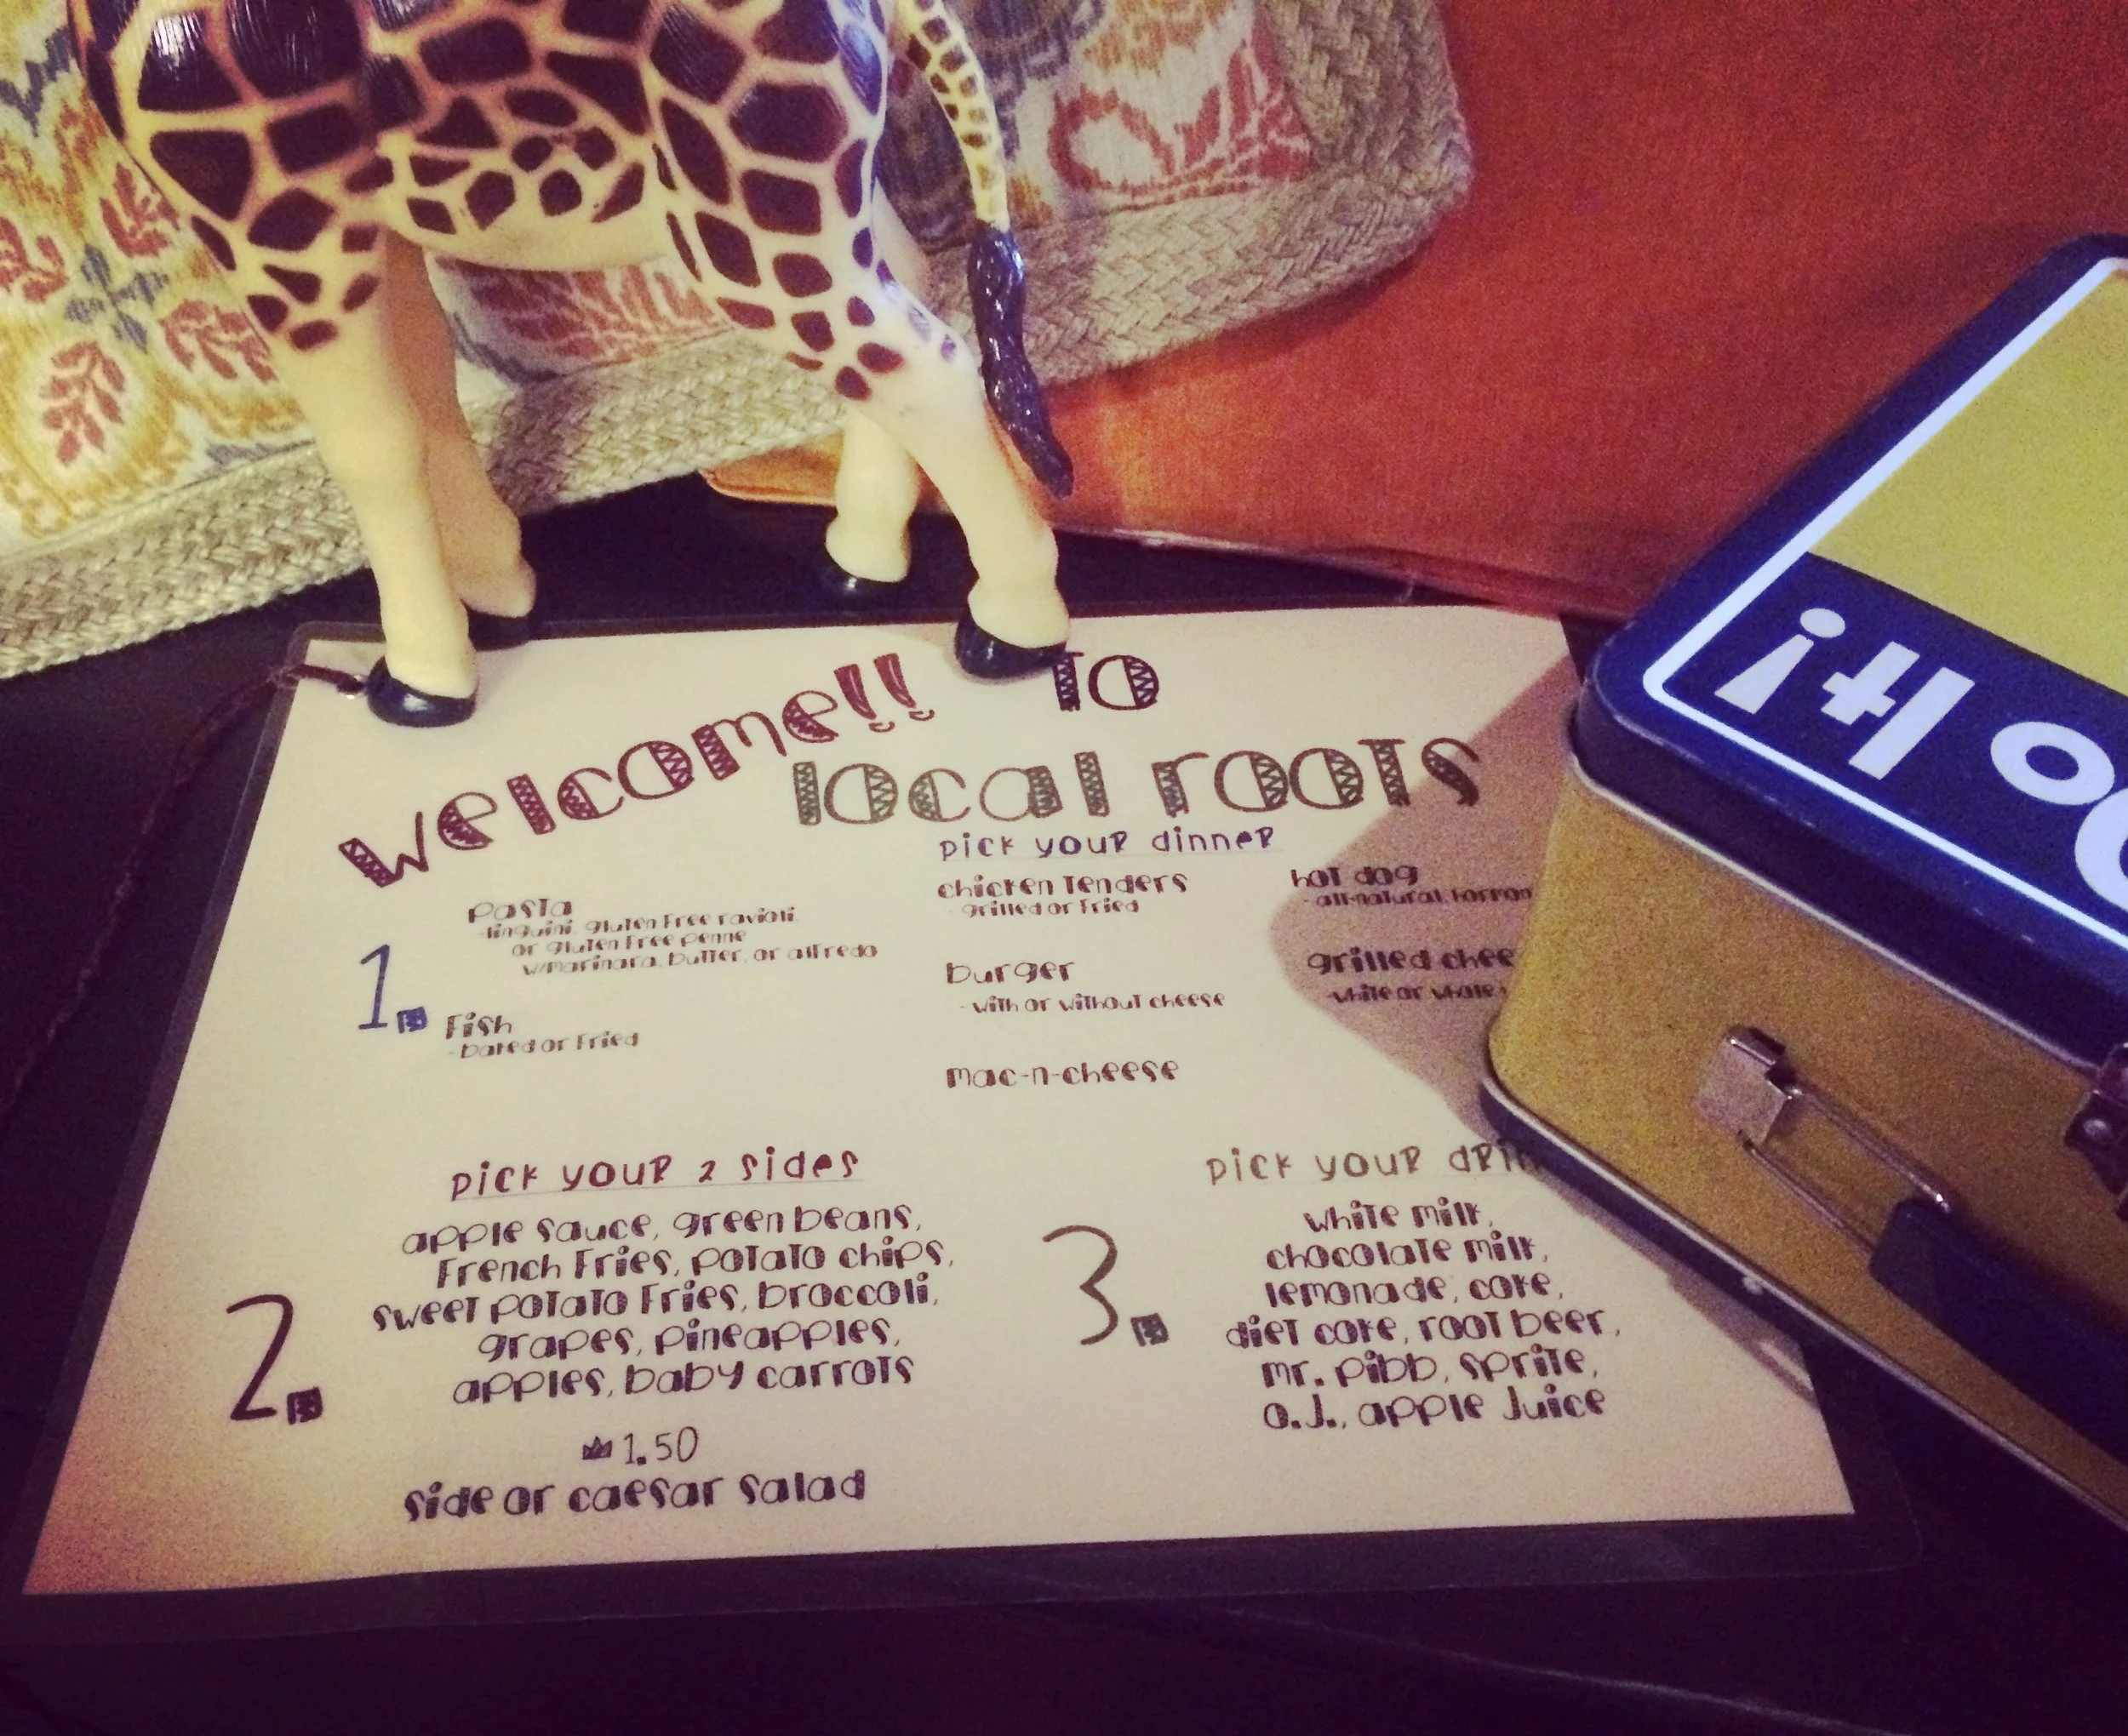 welcome!! to
local roots
pick your dinner
1.
Pasta
-linguini, gluten free ravioli
or gluten free penne
w/marinara, butter, or alfredo
Fish
-baked or fried
chicken tenders
-grilled or fried
burger
-with or without cheese
mac-n-cheese
hot dog
-all-natural,
grilled
-white or
2.
pick your 2 sides
apple sauce, green beans,
French Fries, potato chips,
sweet potato fries, broccoli,
grapes, pineapples,
apples, baby carrots
1.50
side or caesar salad
3.
pick your
white milk,
chocolate milk,
lemonade, coke,
diet coke, root beer,
mr. pibb, sprite,
o.J., apple Juice